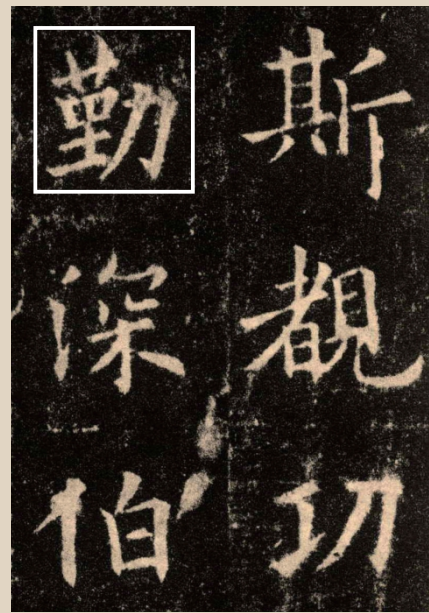 斯覩功
勤深伯